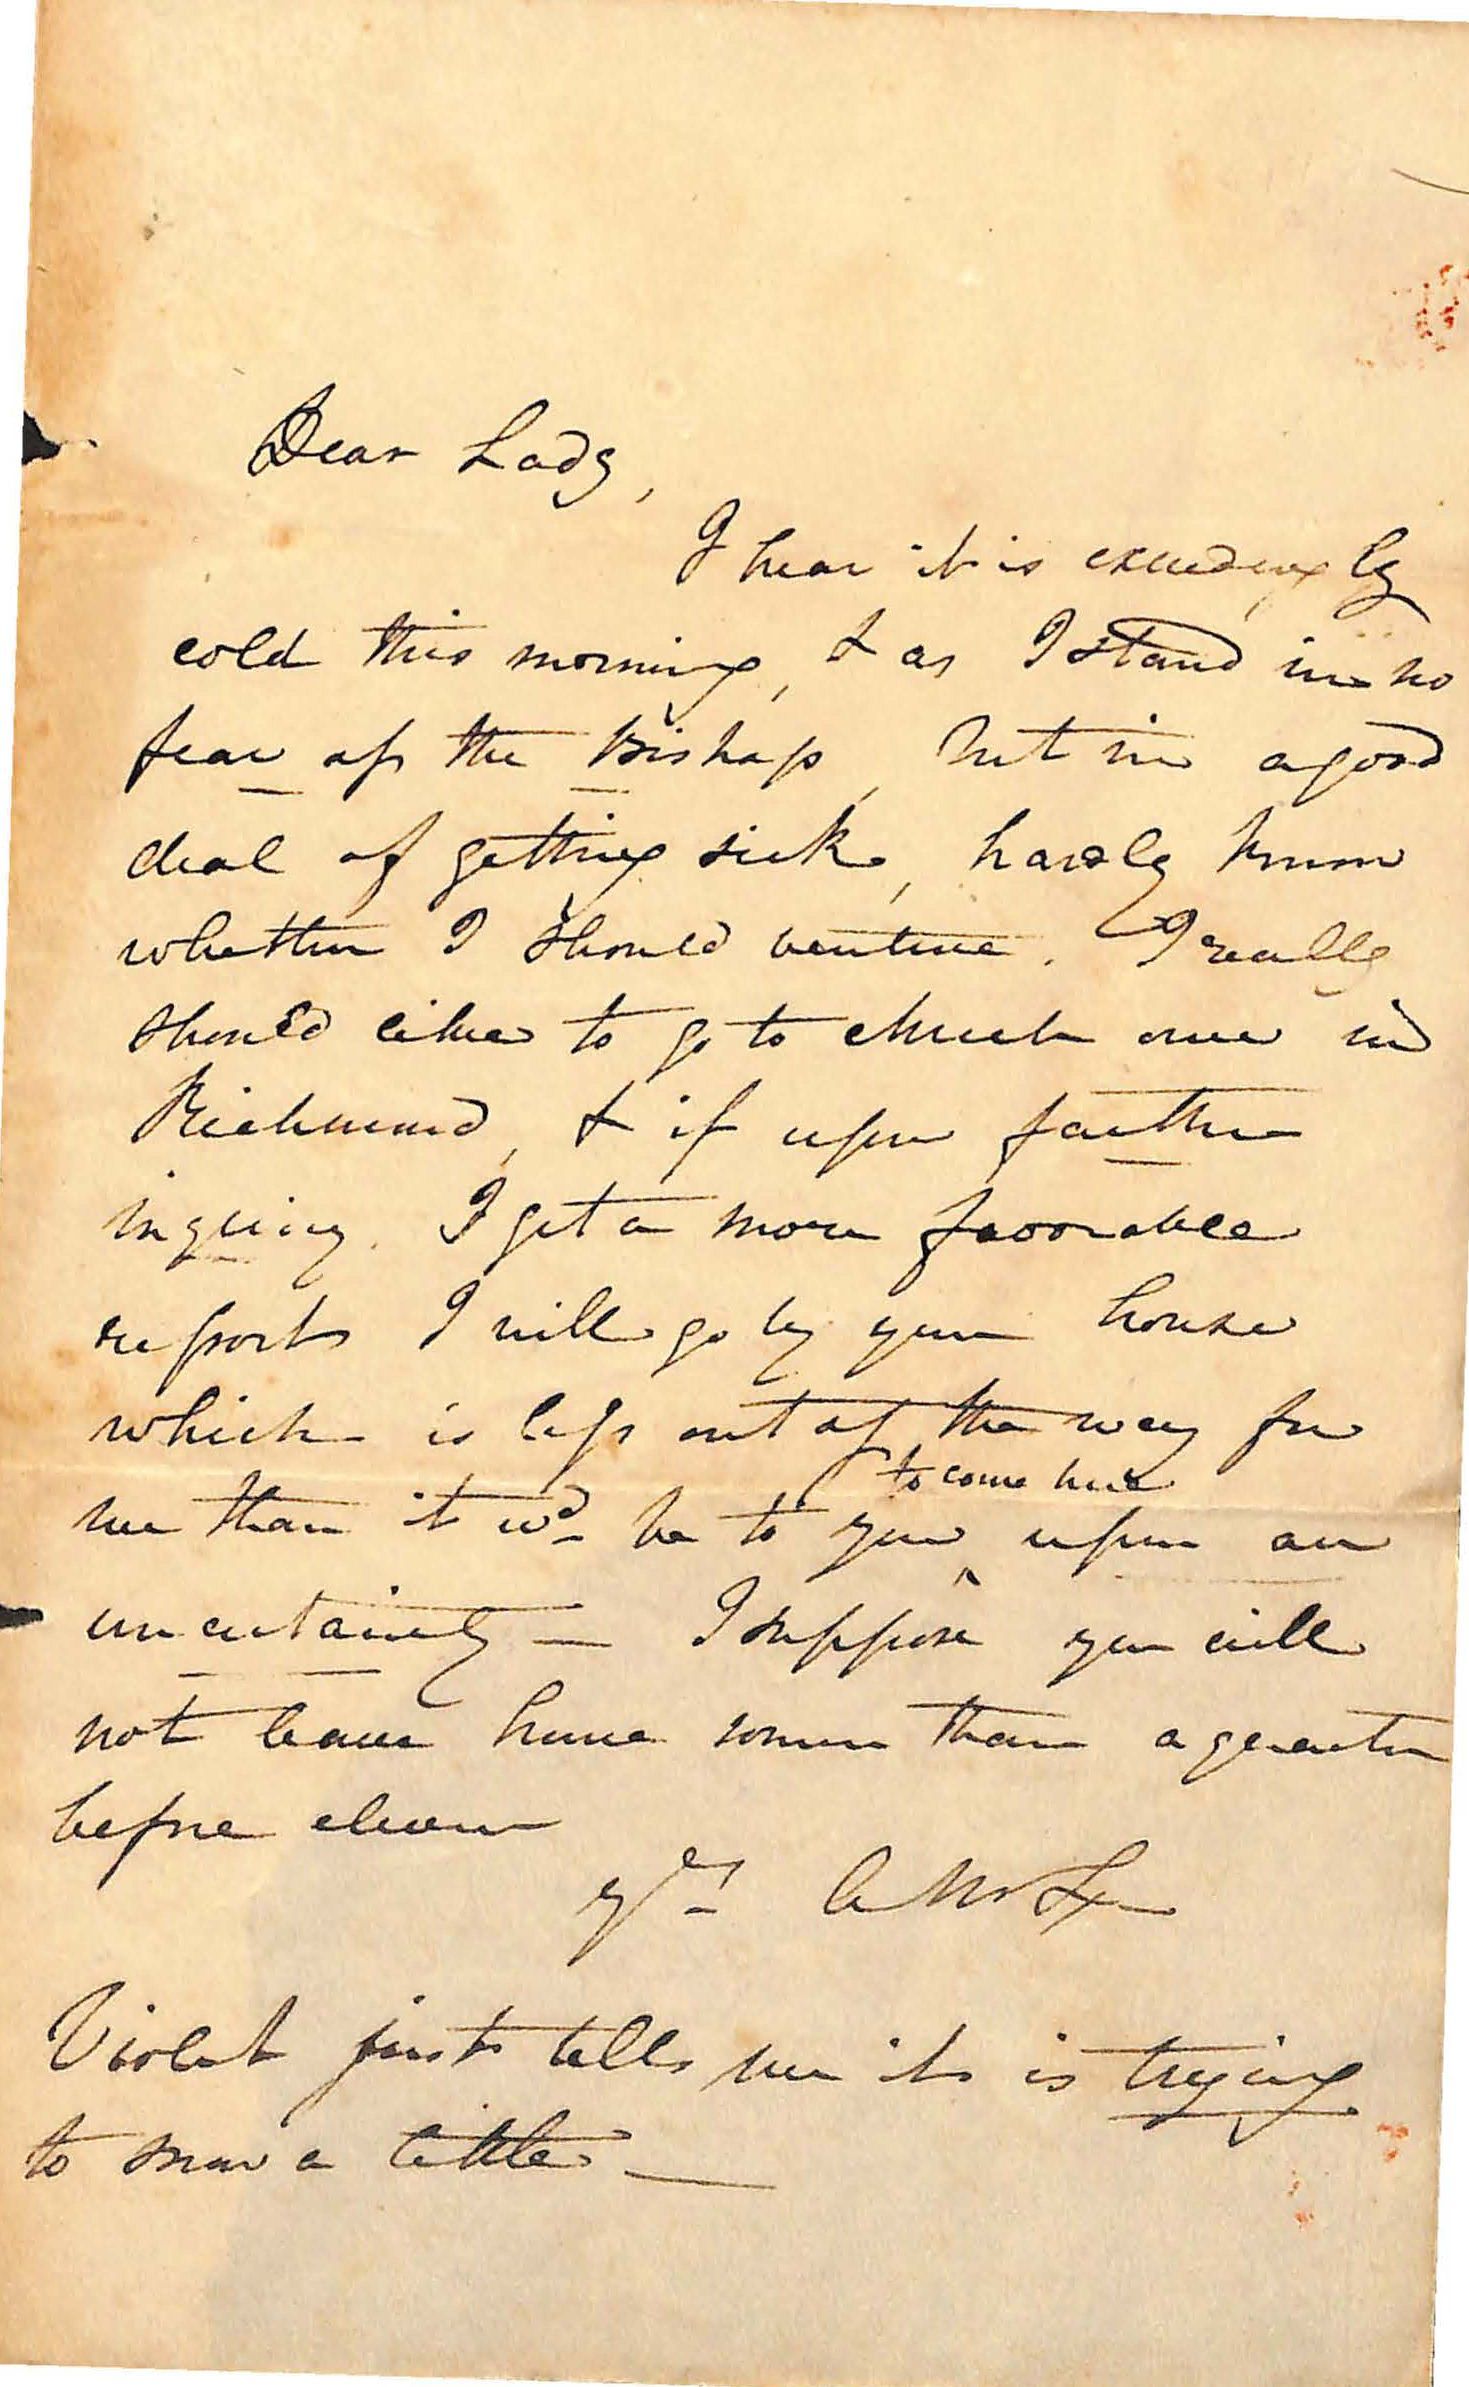 Dear Lady,
I hear it is exceedingly
cold this morning, & as I stand in no
fear of the Bishop, but in a good
deal of getting sick, hardly know
whether I should venture. I really
should like to go to church once in
Richmond, & if upon farther
inquiry I get a more favorable
report I will go by your house
which is less out of the way for
me than it wd be to you to come here upon an
uncertainty — I suppose you will
not leave home sooner than a quarter
before eleven
Yrs
Violet just tells me it is trying
to snow a little —